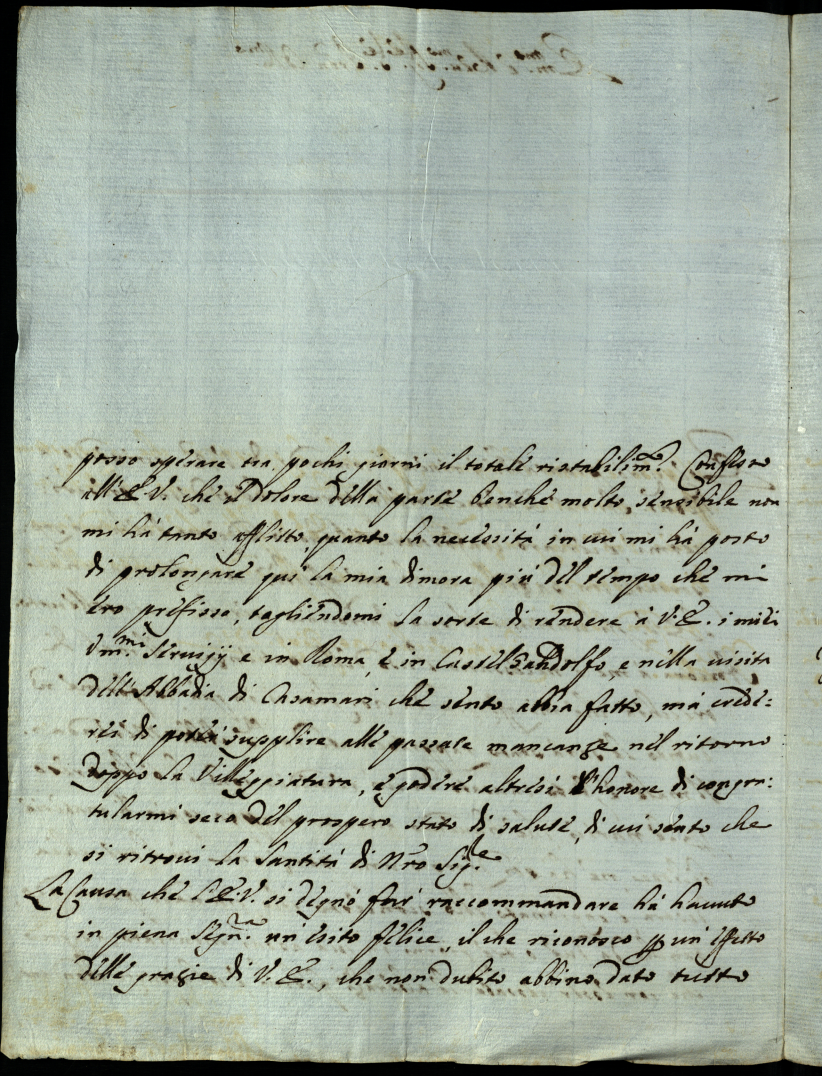 posso sperare tra pochi giorni il totale ristabilim.to Confesso
all'E.V. che il dolore della parte benche molto sensibile non
mi hà tanto afflitto, quanto la necessità in cui mi hà posto
di prolongare qui la mia dimora più del tempo che mi
ero prefisso, togliendomi la sorte di rendere à V.E. i miei
Um.mi Servigij e in Roma, e in Castel Gandolfo, e nella visita
dell'Abbadia di Casamari che sento abbia fatto, mà crede:
rei di poter supplire alle passate mancanze nel ritorno
doppo la Villeggiatura, e godere altresi l'honore di congra:
tularmi seco del prospero stato di salute, di cui sento che
si ritrovi la Santità di Nro Sig.re
La Causa che l'E.V. si degnò far raccommandare hà havuto
in piena Segn.ra un'esito felice, il che riconosco p un'effetto
delle grazie di V.E., che non dubito abbino dato tutto